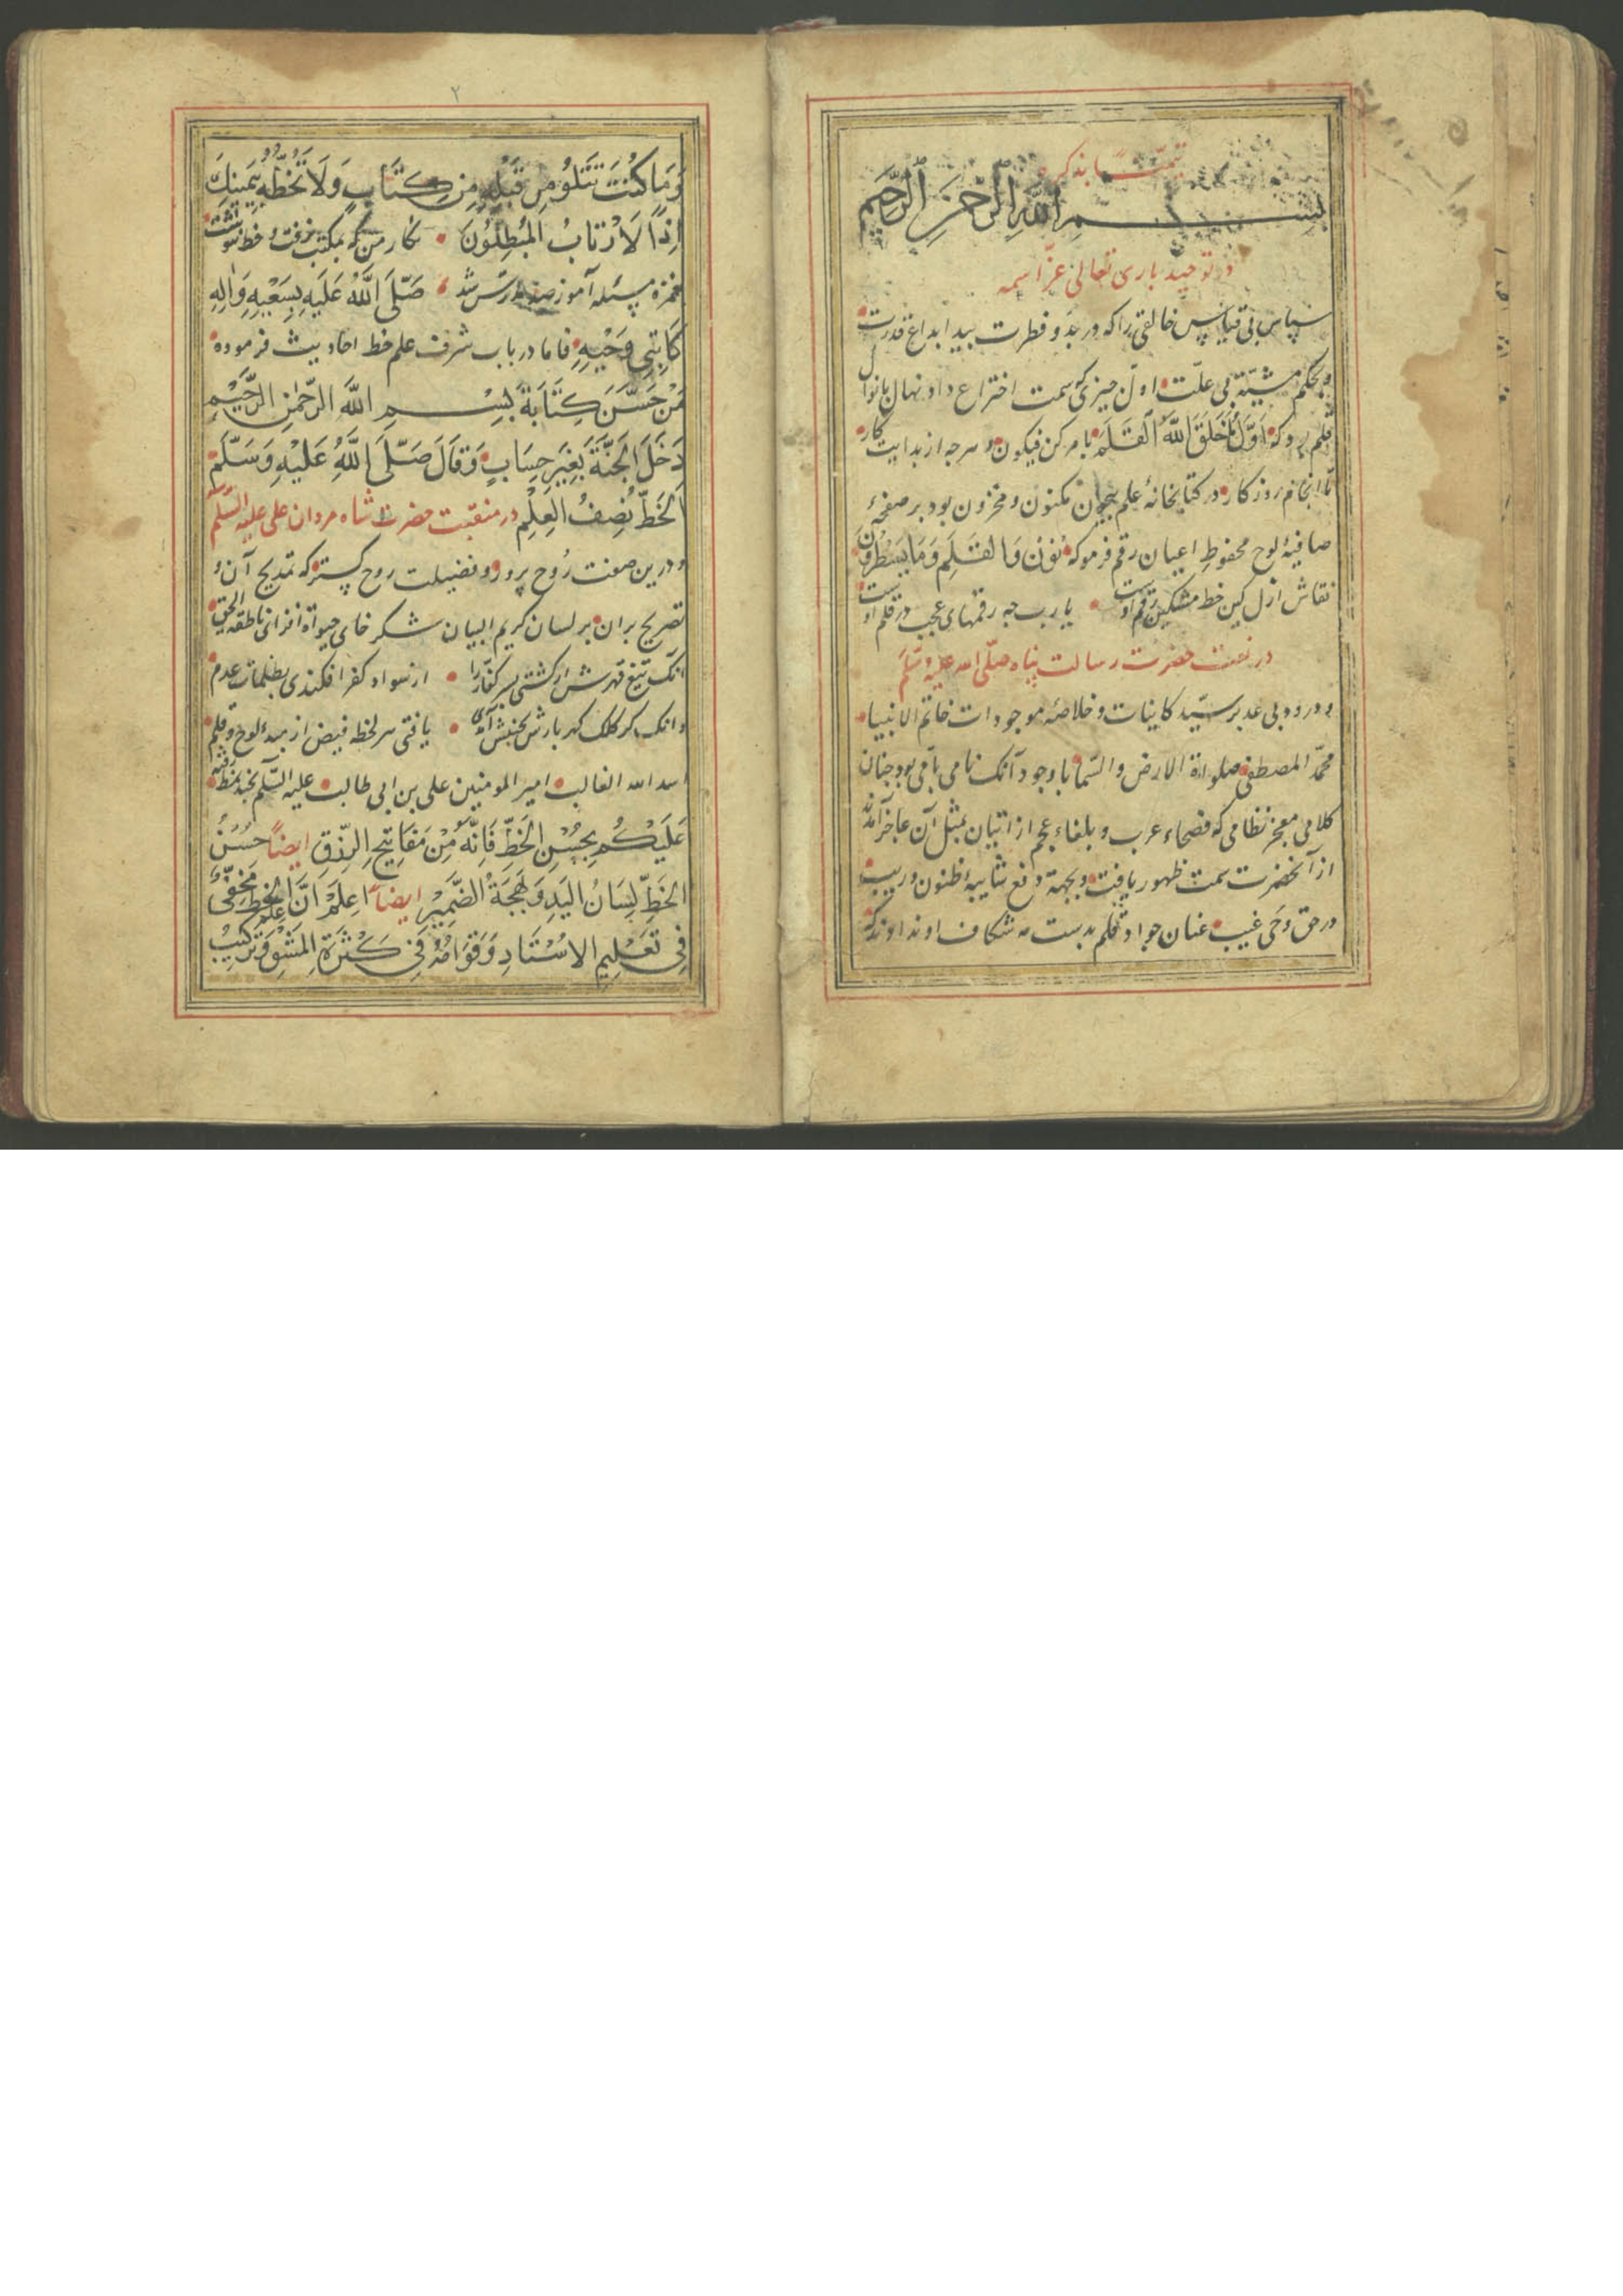 بسم الله الرحمن الرحیم
در توحید باری تعالی عز اسمه
سپاس بی قیاس خالقی را که در بدو فطرت بید ابداع قدرت
و بحکم مشیّته بی علّت اول چیزی که سمت اختراع داد نهال بانوال
قلم بود که اَوَّلُ مَا خَلَقَ اللهُ الْقَلَمَ بامر کن فیکون و هرچه از بدایت کار
تا انجام روزگار در کتابخانهٔ علم بیچون مکنون و مخزون بود بر صفحهٔ
صافیهٔ لوح محفوظ اعیان رقم فرموکه نُونْ وَالْقَلَمِ وَمَا يَسْطُرُونَ
نقاش ازل کین خط مشکین رقم اوست یارب چه رقمهای عجب در قلم اوست
در نعت حضرت رسالت پناه صلّی الله علیه وسَلّم
و درود بی عد بر سیّد کاینات و خلاصهٔ موجودات خاتم الانبیا
محمّد المصطفی صلواة الارض والسّما با وجود آنک نامی بامی بود چنان
کلامی معجز نظامی که فصحاء عرب و بلغاء عجم از اتیان بمثل آن عاجز آمدند
از آنحضرت سمت ظهور یافت و بجهة دفع شایبهٔ ظنون و ریب
در حق وحی غیب عنان جواد قلم بدست مه شکاف او نداوند که
۲
وَمَا كُنْتَ تَتْلُو مِن قَبْلِهِ مِنْ كِتَابٍ وَلَا تَخُطُّهُ بِيَمِينِكَ
اِذًا لَارْتَابَ الْمُبْطِلُونَ نکار من که بمکتب نرفت و خط ننوشت
بغمزه مسئله آموز صد مدرس شد صَلَّى اللَّهُ عَلَيهِ بِسَعْيِهِ وَاٰلِهِ
كَاتِبِي وَحْيِهِ فاما در باب شرف علم خط احادیث فرموده
مَنْ حَسَّنَ كِتَابَةَ بِسْمِ اللهِ الرَّحْمٰنِ الرَّحِيْمِ
دَخَلَ الْجَنَّةَ بِغَيْرِ حِسَابٍ وَقَالَ صَلَّى اللَّهُ عَلَيْهِ وَسَلَّمَ
اَلخَطُّ نِصْفُ العِلْمِ در منقبت حضرت شاه مردان علی علیه السلم
و درین صفت رُوح پرور و فضیلت روح گستر که تمدیح آن و
تصریح بران بر لسان کریم البیان شکر خای حیواة افزای ناطقه الحق
آنک تیغ قهرش ار کشتی بسر کفّار را از سواد کفر افکندی بظلمات عدم
وانک گر کلک گهر بارش بجنبش آمدی یافتی هر لحظه فیض از مبدء لوح و قلم
اسد الله الغالب امیر المومنین علی بن ابی طالب علیه السّلم بچند نمط رفته
عَلَيْكُمْ بِحُسْنِ الْخَطِّ فَاِنَّهُ مِنْ مَفَاتِيْحِ الرِّزْقِ ایضاً حُسْنُ
الخَطِّ لِسَانُ اليَدِ وَبَهْجَةُ الضَّمِيْرِ ایضاً اِعْلَمْ اَنَّ عِلْمَ الخَطِّ مَخْفِيٌّ
فِي تَعْلِيمِ الاُسْتَادِ وَقِوَامُهُ فِي كَثْرَةِ الْمَشْقِ وَتَرْكِيْبِ